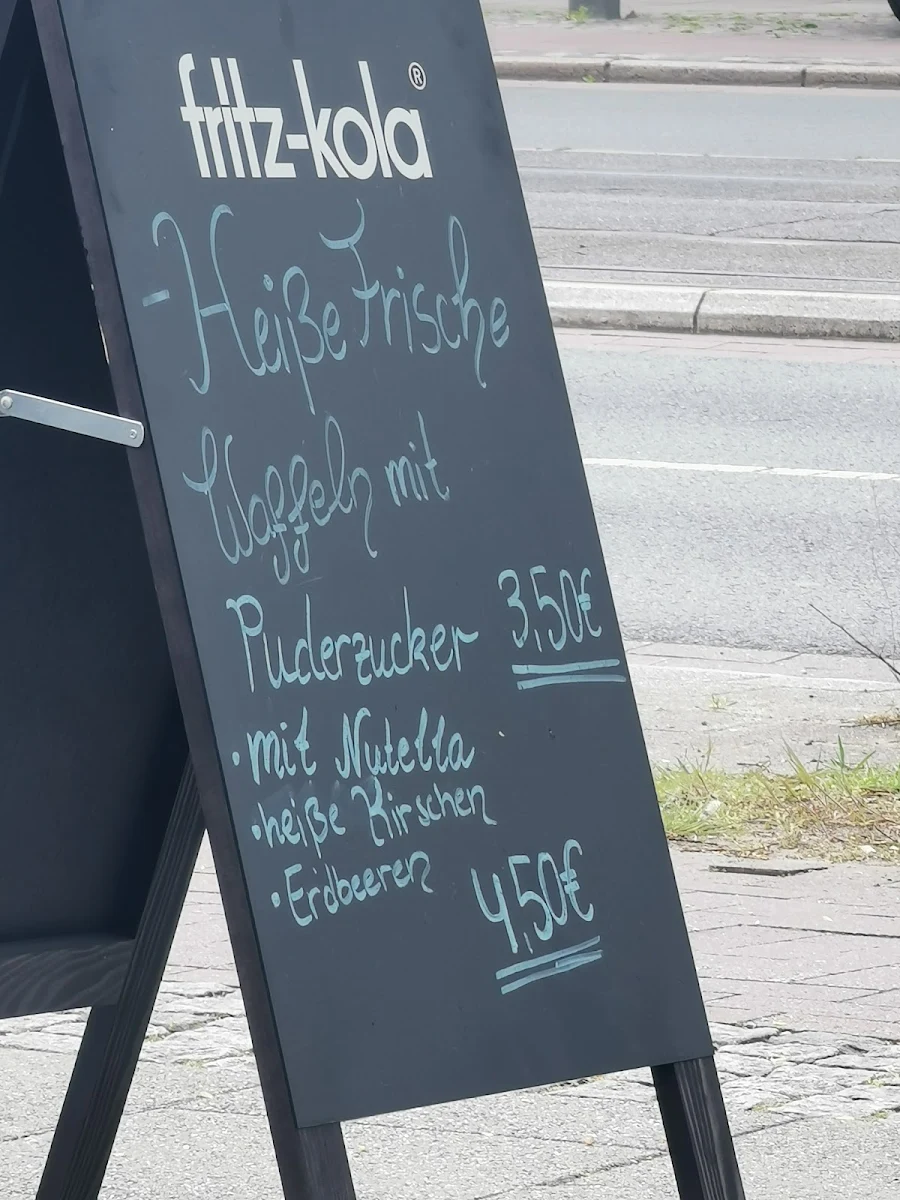 fritz-kola®
- Heiße Frische
Waffeln mit
Puderzucker 3,50€
· mit Nutella
· heiße Kirschen
· Erdbeeren 4,50€